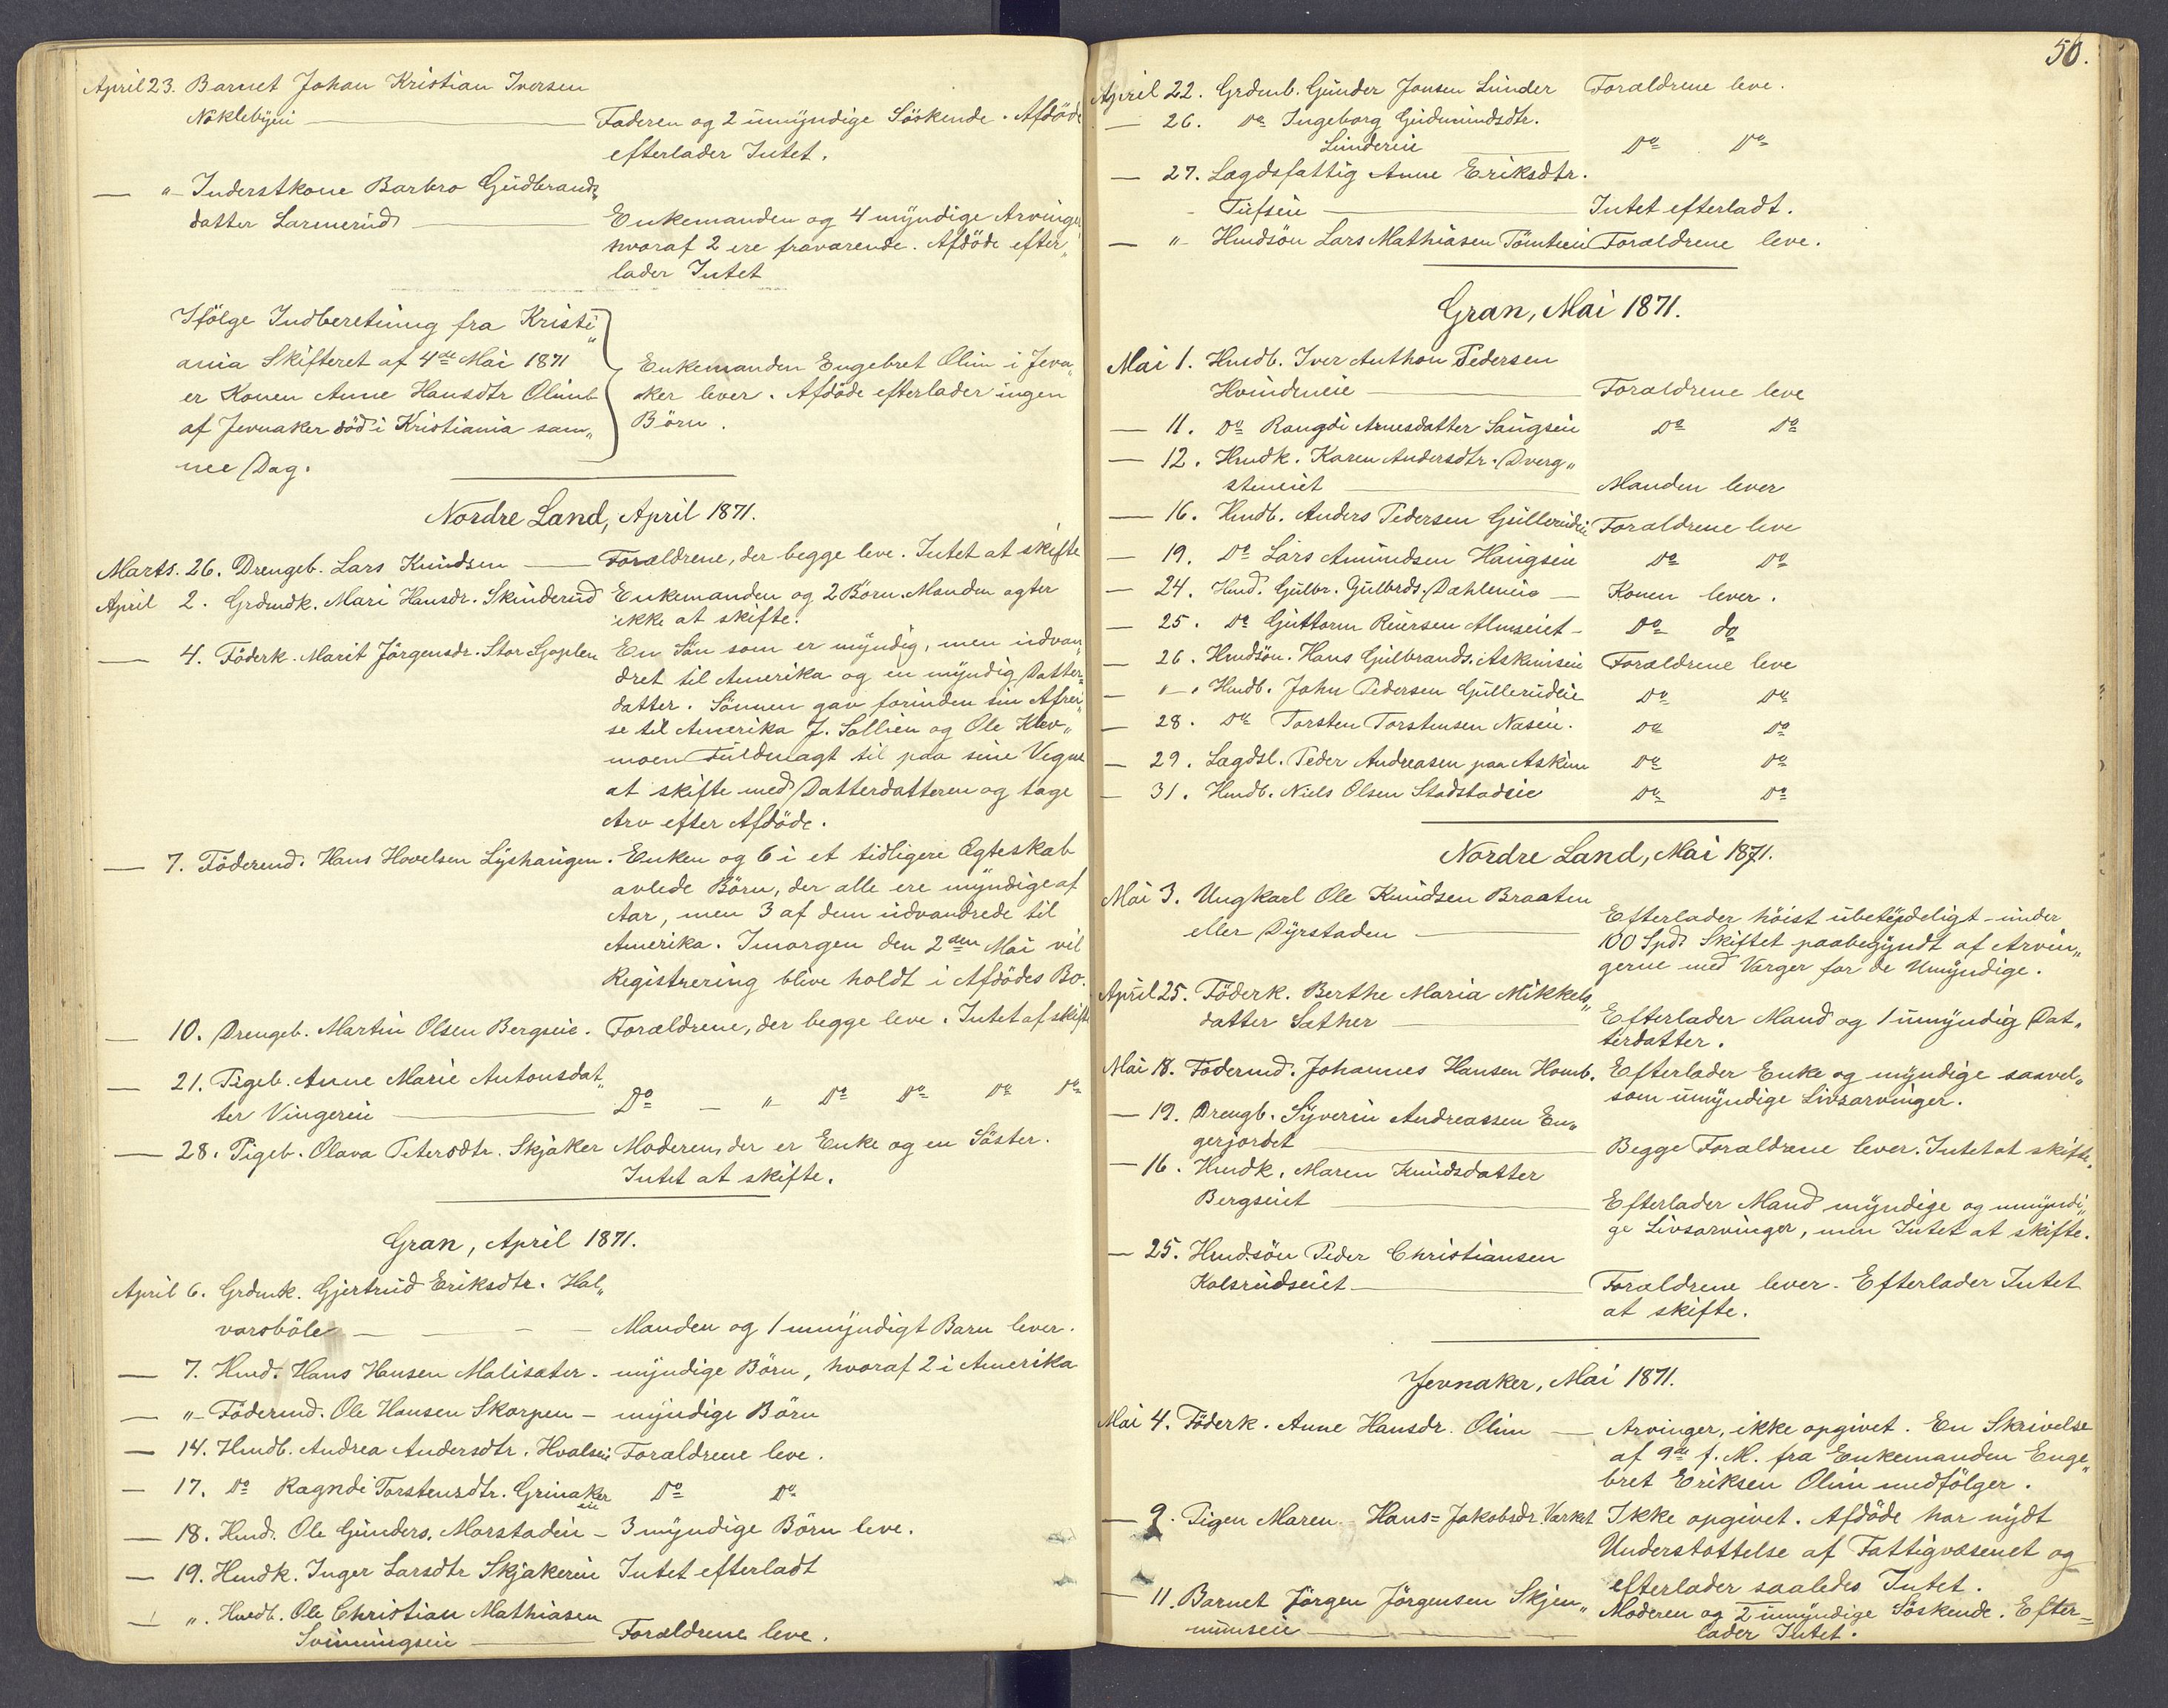 April 23. Barnet Johan Kristian Iversen
Nøklebyei — Faderen og 2 umyndige Söskende. Afdöde
efterlader Intet.
— " Inderstkone Barbro Gudbrands„
datter Larmerud — Enkemanden og 4 myndige Arvinger
hvoraf 2 ere fraværende. Afdöde efter„
lader Intet
Ifölge Indberetning fra Kristi„
ania Skifteret af 4de Mai 1871
er Konen Anne Hansdtr Olimb
af Jevnaker död i Kristiania sam„
me Dag.
Enkemanden Engebret Olim i Jevn„
aker lever. Afdöde efterlader ingen
Börn.
Nordre Land, April 1871.
Marts. 26. Drengeb. Lars Knudsen — Forældrene, der begge leve. Intet at skifte
April 2. Grdmdk. Mari Hansdr. Skinderud Enkemanden og 2 Börn. Manden agter
ikke at skifte.
— 4. Föderk. Marit Jörgensdr. Stor Gjoplen En Sön som er myndig, men udvan„
dret til Amerika og en myndig Datter„
datter. Sönnen gav forinden sin Afrei„
se til Amerika J. Sollien og Ole Klev„
moen Fuldmagt til paa sine Vegne
at skifte med Datterdatteren og tage
Arv efter Afdöde.
— 7. Födermd. Hans Hovelsen Lyshaugen. Enken og 6 i et tidligere Ægteskab
avlede Börn, der alle ere myndige af
Aar, men 3 af dem udvandrede til
Amerika. Imorgen den 2den Mai vil
Registrering blive holdt i Afdödes Bo.
— 10. Drengeb. Martin Olsen Bergseie. Forældrene, der begge leve. Intet at skifte
— 21. Pigeb. Anne Marie Antonsdat„
ter Vingerei — Do — " Do Do Do Do
— 28. Pigeb. Olava Petersdtr. Skjaker Moderen, der er Enke og en Söster.
Intet at skifte.
Gran, April 1871.
April 6. Grdmk. Gjertrud Eriksdtr. Hal„
varsböle — Manden og 1 umyndigt Barn lever.
— 7. Hmd. Hans Hansen Malisæter. myndige Börn, hvoraf 2 i Amerika
— "- Födermd. Ole Hansen Skorpen – myndige Börn
— 14. Hmdb. Andrea Andersdtr. Hvalsei Forældrene leve.
— 17. Do Ragndi Torstensdtr. Grinaker Do Do
eie
— 18. Hmd. Ole Gunders. Morstadeie – 3 myndige Börn leve.
— 19. Hmdk. Inger Larsdtr Skjakereie Intet efterladt
— ". Hmdb. Ole Christian Mathiasen
Svinningseie — Forældrene leve.
50.
April 22. Grdmb. Gunder Jonsen Lunder Forældrene leve.
— 26. Do Ingeborg Gudmundsdtr.
Lundereie — Do Do
— 27. Lægdsfattig Anne Eriksdtr.
Tufseie — Intet efterladt.
— " Hmdsön Lars Mathiasen Tömteeie Forældrene leve.
Gran, Mai 1871.
Mai 1. Hmdb. Iver Anthon Pedersen
Hvindeneie — Forældrene leve
— 11. Do Rangdi Arnesdatter Saugseie Do Do
— 12. Hmdk. Karen Andersdtr. Dverg„
steneiet — Manden lever
— 16. Hmdb. Anders Pedersen Gullerudeie Forældrene leve
— 19. Do Lars Amundsen Haugseie Do Do
— 24. Hmd. Gulbr. Gulbrds. Dahleneie — Konen lever.
— 25. Do Guttorm Reiersen Almseiet – Do do
— 26. Hmdsön. Hans Gulbrands. Askimseie Forældrene leve
— "-" Hmdb. John Pedersen Gullerudeie Do Do
— 28. Do Torsten Torstensen Næseie. Do Do
— 29. Lægdsl. Peder Andreasen paa Askim Do Do
— 31. Hmdb. Niels Olsen Stadstadeie Do Do
Nordre Land, Mai 1871.
Mai 3. Ungkarl Ole Knudsen Braaten
eller Dyrstaden — Efterlader höist ubetydeligt – under
100 Spd. Skiftet paabegyndt af Arvin„
gerne med Værger for de Umyndige.
April 25. Föderk. Berthe Maria Mikkels„
datter Sæther — Efterlader Mand og 1 umyndig Dat„
terdatter.
Mai 18. Födermd. Johannes Hansen Homb. Efterlader Enke og myndige saavel„
som umyndige Livsarvinger.
— 19. Drengb. Syverin Andreassen En„
gerjordet — Begge Forældrene lever. Intet at skifte.
— 16. Hmdk. Maren Knudsdatter
Bergseiet — Efterlader Mand myndige og umyndi„
ge Livsarvinger, men Intet at skifte.
— 25. Hmdsön Peder Christiansen
Kolsrudseiet — Forældrene lever. Efterlader Intet
at skifte.
Jevnaker, Mai 1871.
Mai 4. Föderk. Anne Hansdr. Olim — Arvinger, ikke opgivet. En Skrivelse
af 9de f. M. fra Enkemanden Enge„
bret Eriksen Olim medfölger.
— 9. Pigen Maren Hans= Jakobsdr. Værket Ikke opgivet. Afdöde har nydt
Understøttelse af Fattigvæsenet og
efterlader saaledes Intet.
— 11. Barnet Jörgen Jörgensen Skjen„ Moderen og 2 umyndige Söskende. Efter=
numseie — lader Intet.